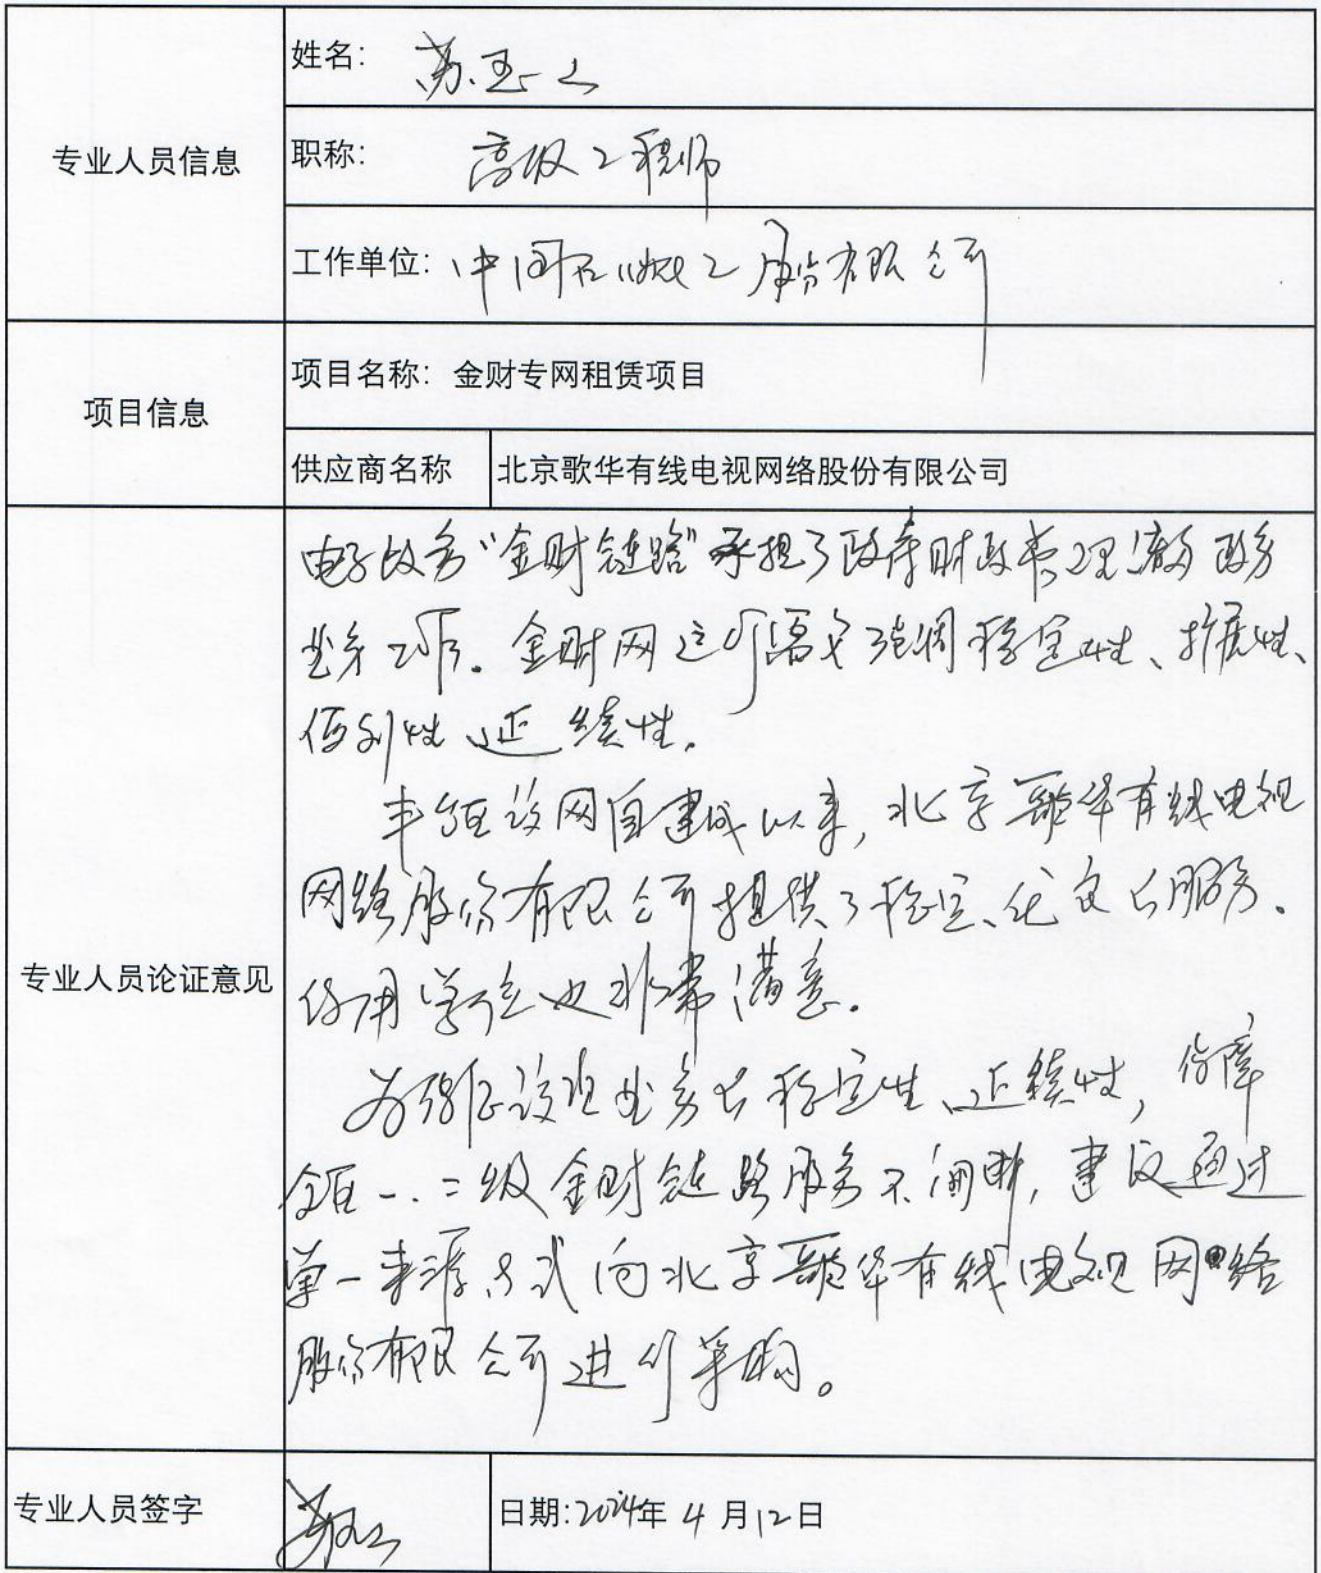 专业人员信息
姓名：苏玉
职称：高级工程师
工作单位：中国石化 股份有限公司
项目信息
项目名称：金财专网租赁项目
供应商名称 北京歌华有线电视网络股份有限公司
专业人员论证意见
电子政务“金财链路”承担了政府财政管理 政务
业务工作。金财网运行需要强调稳定性、扩展性、
便利性、延续性。
丰台区该网自建成以来，北京歌华有线电视
网络股份有限公司提供了稳定、优良的服务。
使用单位也非常满意。
为保证该项业务的稳定性、延续性，保障
全区一、二级金财链路服务不间断，建议通过
单一来源方式向北京歌华有线电视网络
股份有限公司进行采购。
专业人员签字
日期：2024年4月12日